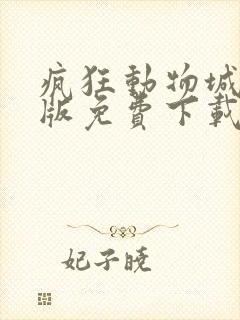 疯狂動物城
版免費下載
妃子曉